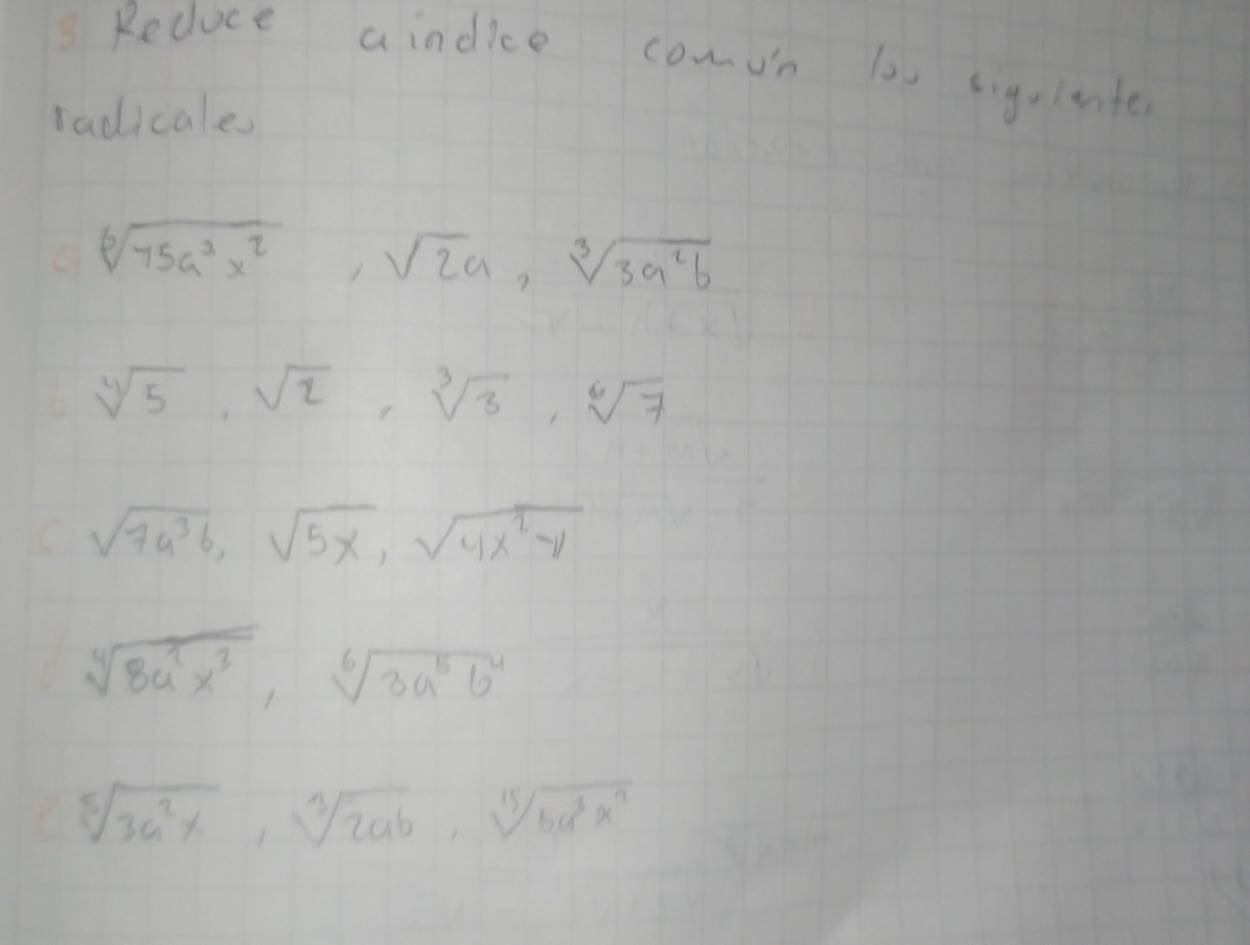 3 Reduce a indice común los siguientes
radicales
a ⁶√15a³x² , √2a, ³√3a²b
b ⁴√5 , √2 , ³√3 , ⁶√7
c √7a³b, √5x, √4x²-y
d ⁴√8a²x³ , ⁶√3a⁵b⁴
e ⁵√3a²x , ³√2ab , ¹⁵√5a³x²